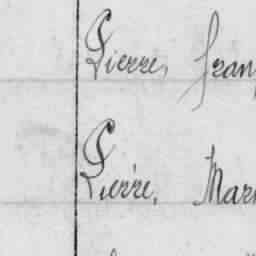 Pierre, Fran
Pierre, Mar